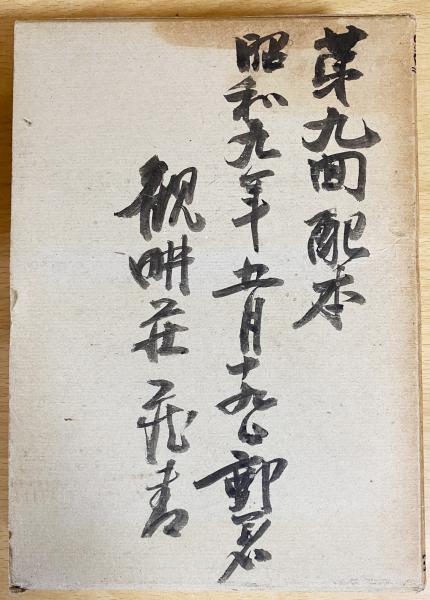 第九回配本
昭和九年五月十九日郵着
観畊荘蔵書